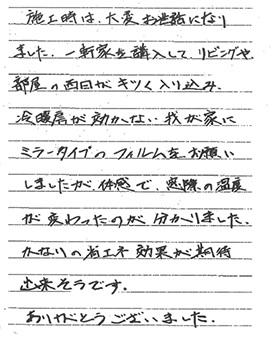 施工時は、大変お世話になり
ました。一軒家を購入して、リビングや
部屋の西日がキツく入り込み、
冷暖房が効かない我が家に
ミラータイプのフィルムをお願い
しましたが、体感で、窓際の温度
が変わったのが分かりました。
かなりの省エネ効果が期待
出来そうです。
ありがとうございました。